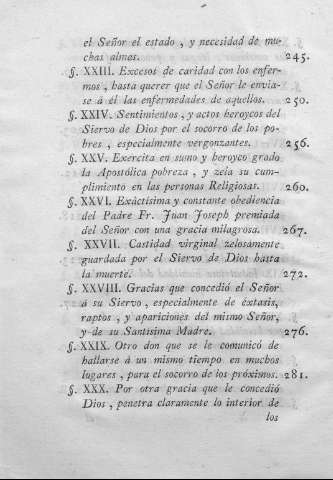 el Señor el estado , y necesidad de mu-
chas almas. 245.
§. XXIII. Excesos de caridad con los enfer-
mos , hasta querer que el Señor le envia-
se á él las enfermedades de aquellos. 250.
§. XXIV. Sentimientos , y actos heroycos del
Siervo de Dios por el socorro de los po-
bres , especialmente vergonzantes. 256.
§. XXV. Exercita en sumo y heroyco grado
la Apostólica pobreza , y zela su cum-
plimiento en las personas Religiosas. 260.
§. XXVI. Exâctísima y constante obediencia
del Padre Fr. Juan Joseph premiada
del Señor con una gracia milagrosa. 267.
§. XXVII. Castidad virginal zelosamente
guardada por el Siervo de Dios hasta
la muerte. 272.
§. XXVIII. Gracias que concedió el Señor
á su Siervo , especialmente de éxtasis,
raptos , y apariciones del mismo Señor,
y de su Santísima Madre. 276.
§. XXIX. Otro don que se le comunicó de
hallarse á un mismo tiempo en muchos
lugares , para el socorro de los próximos. 281.
§. XXX. Por otra gracia que le concedió
Dios , penetra claramente lo interior de
los